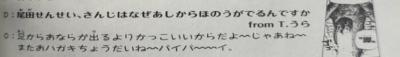 D：尾田せんせい、さんじはなぜあしからほのうがでるんですか
from T.うら
O：尻からおならが出るよりかっこいいからだよ〜じゃあね〜
またおハガキちょうだいね〜バイバ〜〜イ。